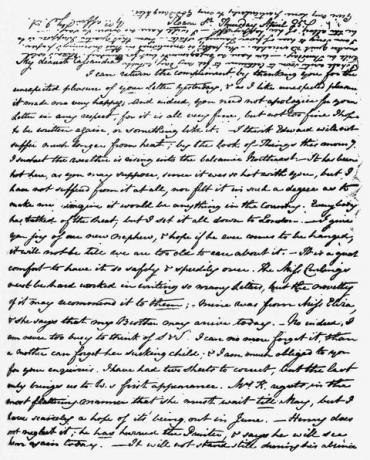 Sloane St Thursday April 25
My dearest Cassandra
I can return the compliment by thanking you for the
unexpected pleasure of your Letter yesterday, & as I like unexpected pleasure
it made me very happy; And indeed, you need not apologise for your
Letter in any respect, for it is all very fine, but not too fine I hope
to be written again, or something like it. I think Edward will not
suffer much longer from heat; by the look of Things this morng
I suspect the weather is rising into the balsamic Northeast. It has been
hot here, as you may suppose, since it was so hot with you, but I
have not suffered from it at all, nor felt it in such a degree as to
make me imagine it would be anything in the Country. Everybody
has talked of the heat, but I set it all down to London. I give
you joy of our new Nephew, & hope if he ever comes to be hanged,
it will not be till we are too old to care about it. It is a great
comfort to have it so safely & speedily over. The Miss Curlings
must be hard worked in writing so many Letters, but the novelty
of it may recommend it to them; mine was from Miss Eliza,
& she says that my Brother may arrive today. No indeed, I
am never too busy to think of S&S. I can no more forget it, than
a mother can forget her sucking child; & I am much obliged to you
for your enquiries. I have had two sheets to correct, but the last
only brings us to W.s first appearance. Mrs K. regrets in the
most flattering manner that she must wait till May, but I
have scarcely a hope of its being out in June. Henry does
not neglect it; he has hurried the Printer, & says he will see
him again today. It will not stand still during his absence